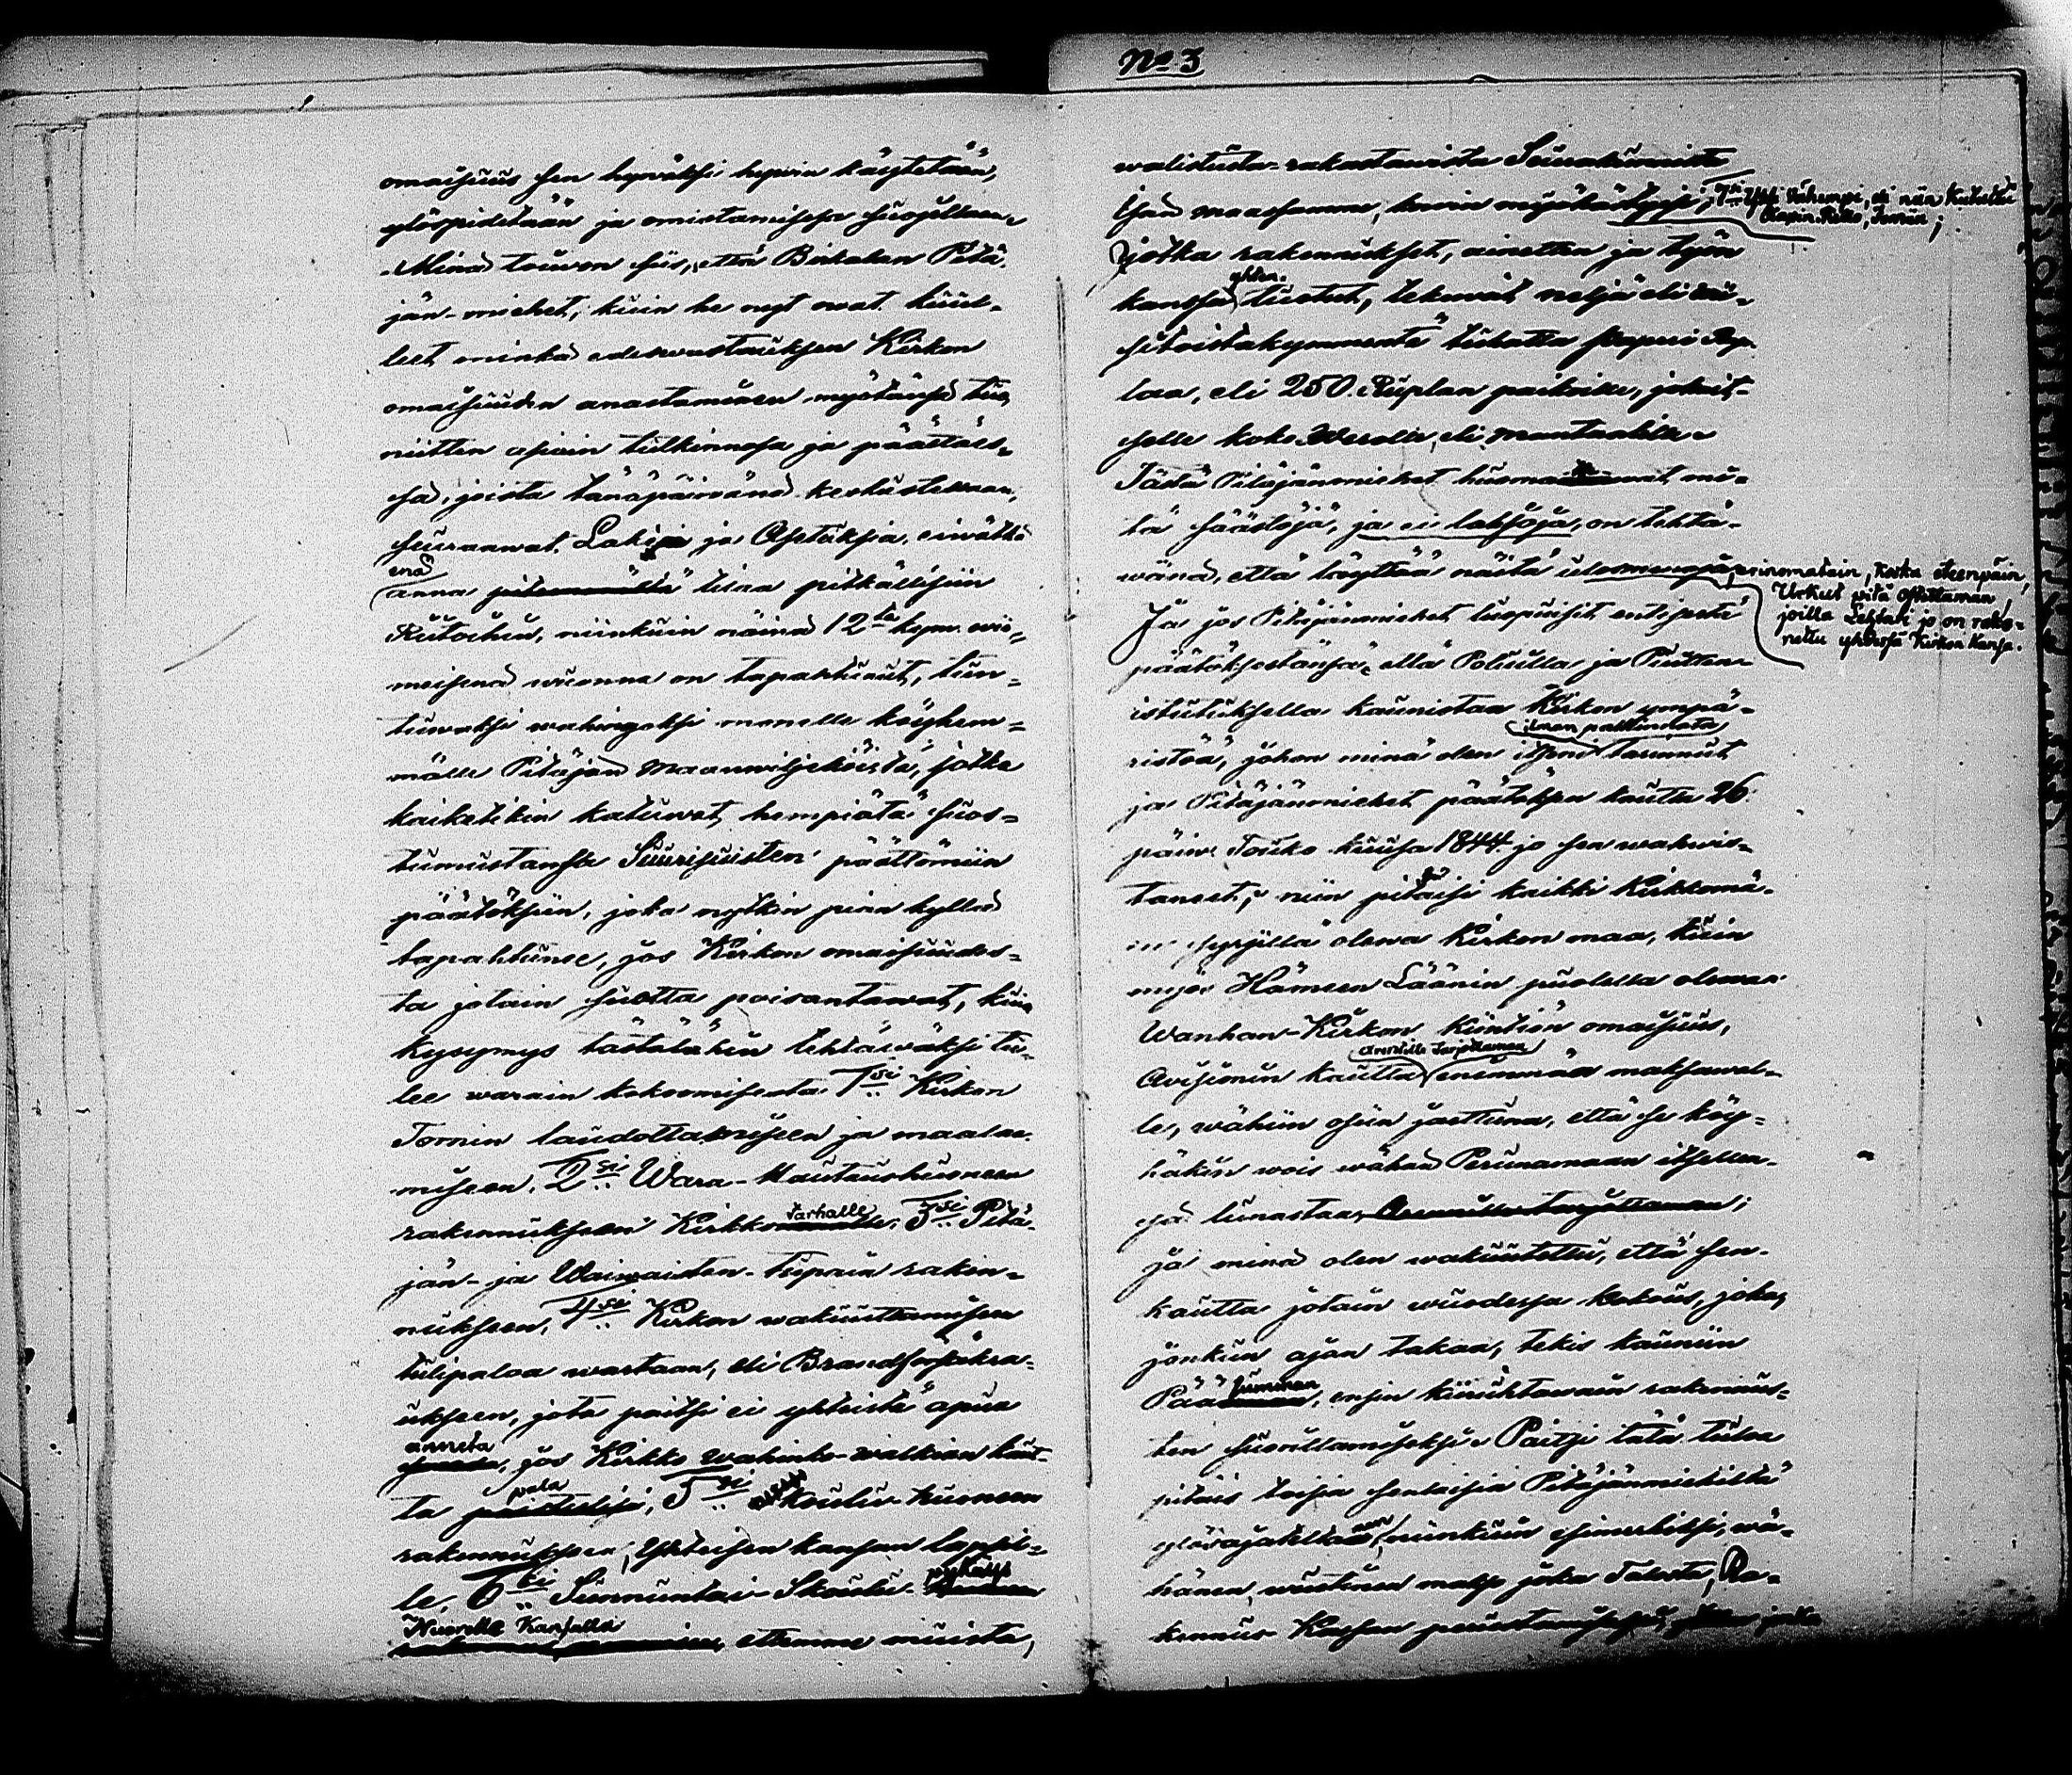 omaisuus sen hyväksi hywin käytetään,
ylöspidetään ja omistamisessa suojellaan.
Minä toiwon siis, että Birkalan Pitä-
jän-miehet, kuin he nyt owat kuul-
leet minkä edeswastauksen Kirkon
omaisuuden anastaminen myötänsä tuo,
niitten asiain tutkinnosa ja päättäes-
sä, joista tänäpäiwänä keskustellaan,
seuraawat Lakia ja Asetuksia, eiwätkä
enä
anna tilaa pitkällisiin
Riitoihin, niinkuin näinä 12ta kym. wii-
meisenä wuonna on tapahtunut, tun-
tuwaksi wahingoksi monelle köyhem-
mälle Pitäjän Maanwiljeliöistä, jotka
kaiketikin katuwat hempiätä suos-
tumustansa Suurisuisten päättömiin
päätöksiin, joka nytkin pian kyllä
tapahtunee, jos Kirkon omaisuudes-
ta jotain suotta poisantawat, kuin
kysymys tästälähin tehtäwäksi tu-
lee warain kokoomisesta 1si Kirkon
Tornin laudottamiseen ja maalaa-
miseen, 2si Wara-Hautaushuoneen
tarhalle
rakennukseen Kirkko 3si Pitä-
jän- ja Waiwaisten-tupain raken-
nukseen, 4si Kirkon wakuuttamiseen
tulipaloa wastaan, eli Brandförsäkra-
ukseen, jota paitsi ei yhteistä apua
anneta
jos Kirkko wahinko-walkian kaut-
pala
ta 5si Koulu-huoneen
rakennukseen, Yhteisen kansan lapsil-
pyhäiss
le, 6si Sunnuntai-Skoulu
Nuorelle Kansalle
ettemme muista,
No 3
walistusta-rakastawista Seurakunnista
Isän maassamme, kuin myöhästyysi; 7si Yksi Vähempi, eli niin Kutsuttu
Klapin-Reko, Torniin;
jotka rakennukset, ainetten ja työn
yhten.
kanssa luetut, tekewät neljä eli wii-
sitoistakymmentä tuhatta Paperi Rup-
laa, eli 250 Ruplan paikoilla, jokait-
selle koko Weroilla, eli mantaalilla.
Tästä Pitäjänmiehet huomaawat mi-
tä säästöjä, ja ei lahjoja, on tehtä-
wänä, että täyttää näitä ulosmenoja, erinomatain, koska eteenpäin,
Urkut pitä Ostettaman,
joilla Lehtari jo on raken-
nettu yhdessä Kirkon Kansa.
Ja jos Pitäjänmiehet luopuisit entisestä
päätöksestänsä, että Poluilla ja Puitten-
istutuksella kaunistaa Kirkon ympä-
ilman palkinnota
ristöä, johon minä olen itseni tarinnut
ja Pitäjänmiehet päätöksen kautta 26
päiw. Touko kuusa 1844 jo sen wahwis-
tanet; niin pitäisi kaikki Kirkkomä-
en syrjillä olewa Kirkon maa, kuin
myös Hämeen Läänin puolella olewa
Wanhan-Kirkon Kiintiön omaisuus,
Arendille tarjottaman
Avisiunin kautta enemmän maksawal-
le, wähiin osiin jaettuna, että se köy-
häkin wois wähän Perunamaan itsellen-
sä lunastaa, Arendille tarjottaman;
ja minä olen wakuutettu, että sen-
kautta jotain wuodessa kokous, joka,
jonkun ajan takaa, tekis kauniin
summan
Pää , ensin kiiruhtawain rakennus-
ten suorittamiseksi. Paitsi tätä tuloa
pitäis toisia senlaisia Pitäjänmiehiltä
ylösajatellaan, niinkuin esimerkiksi, wä-
hänen wuotinen maksu joka Talosta, Ra-
kennus Kassan perustamiseksi, joka